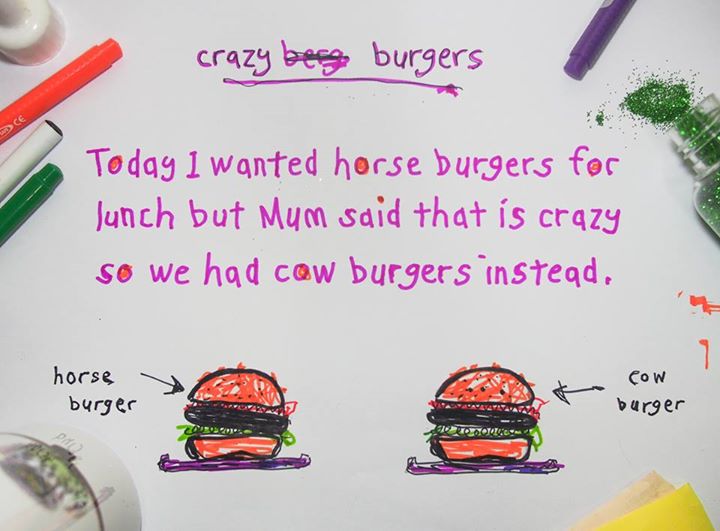 crazy burgers
Today I wanted horse burgers for
lunch but Mum said that is crazy
so we had cow burgers instead.
horse
burger
cow
burger
CE